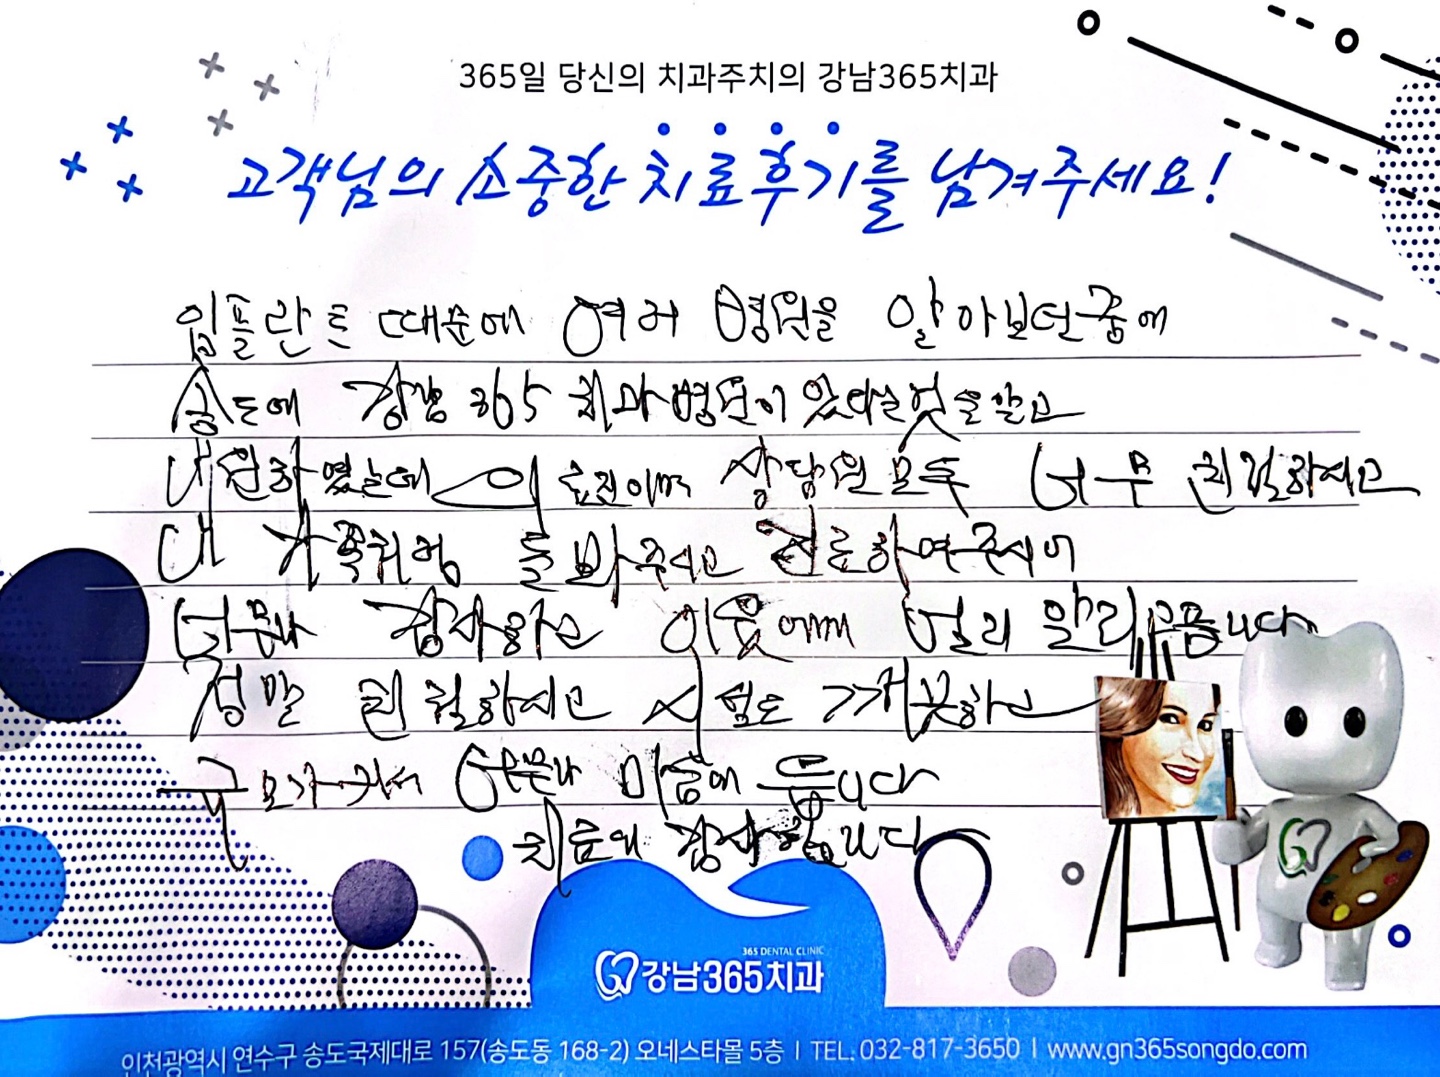 365일 당신의 치과주치의 강남365치과
고객님의 소중한 치료후기를 남겨주세요!
임플란트 때문에 여러 병원을 알아보던중에
송도에 강남 365 치과병원이 있다는것을알고
내원하였는데 의료진이며 상담원모두 너무 친절하시고
내 가족처럼 돌봐주시고 진료하여주시어
너무나 감사하고 이웃에게 널리 알리우픕니다
정말 친절하시고 시설도 깨끗하고
규모가커서 너무나 마음에 듭니다
치료에 감사합니다
365 DENTAL CLINIC
강남365치과
인천광역시 연수구 송도국제대로 157(송도동 168-2) 오네스타몰 5층 | TEL. 032-817-3650 | www.gn365songdo.com